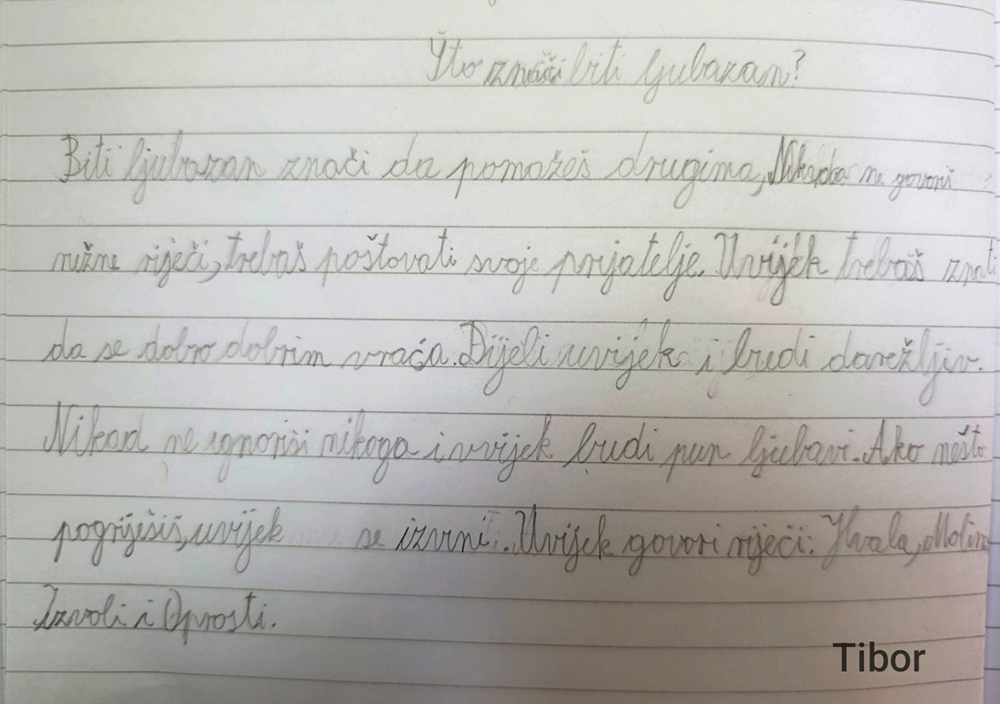 Što znači biti ljubazan?
Biti ljubazan znači da pomažeš drugima, Nikada ne govoriš
ružne riječi, trebaš poštovati svoje prijatelje. Uvijek trebaš znati
da se dobro dobrim vraća. Dijeli uvijek i budi darežljiv.
Nikad ne ignoriši nikoga i uvijek budi pun ljubavi. Ako nešto
pogriješiš, uvijek se izvini. Uvijek govori riječi: Hvala, Molim
Izvoli i Oprosti.
Tibor